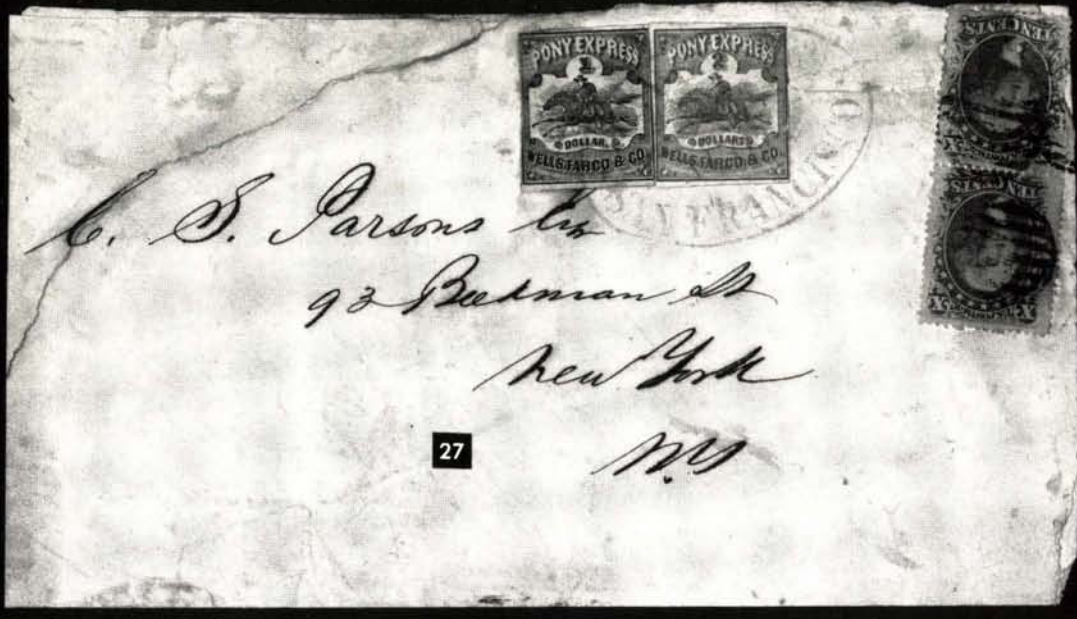 PONY EXPRESS
1
DOLLAR.
WELLS FARGO & CO.
PONY EXPRESS
2
DOLLARS
WELLS FARGO, & CO.
SAN FRANCISCO
TEN CENTS
X
TEN CENTS
X X
C. S. Parsons Esq
93 Beekman St
New York
N.Y
27